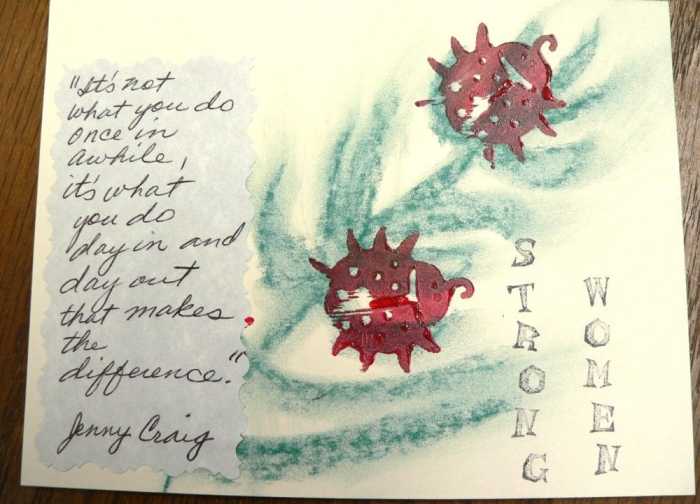 "It's not
what you do
once in
awhile,
it's what
you do
day in and
day out
that makes
the
difference."
Jenny Craig
STRONG
WOMEN